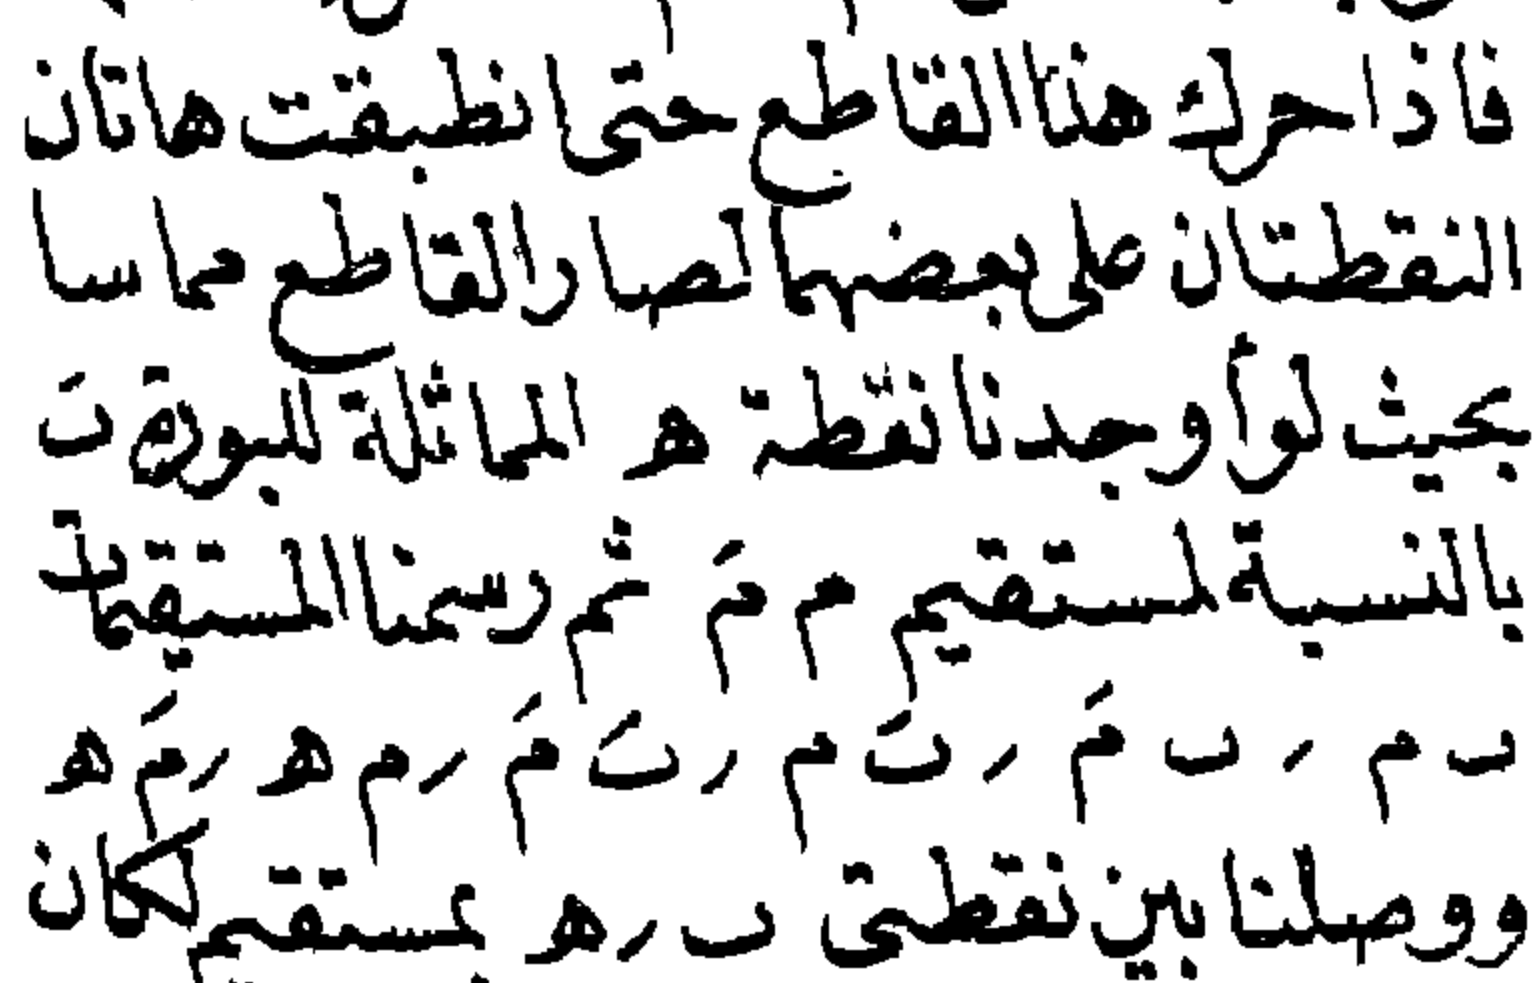 فاذا حرك هذا القاطع حتى انطبقت هاتان
النقطتان على بعضهما لصار القاطع مماسا
بحيث لو أوجدنا نقطة ه المماثلة للبورة ىَ
بالنسبة لمستقيم م مَ ثم رسمنا المستقيمات
ى م ر ى مَ ر ىَ م ر ىَ مَ ر م ه ر مَ ه
ووصلنا بين نقطتى ى ر ه بمستقيم لكان